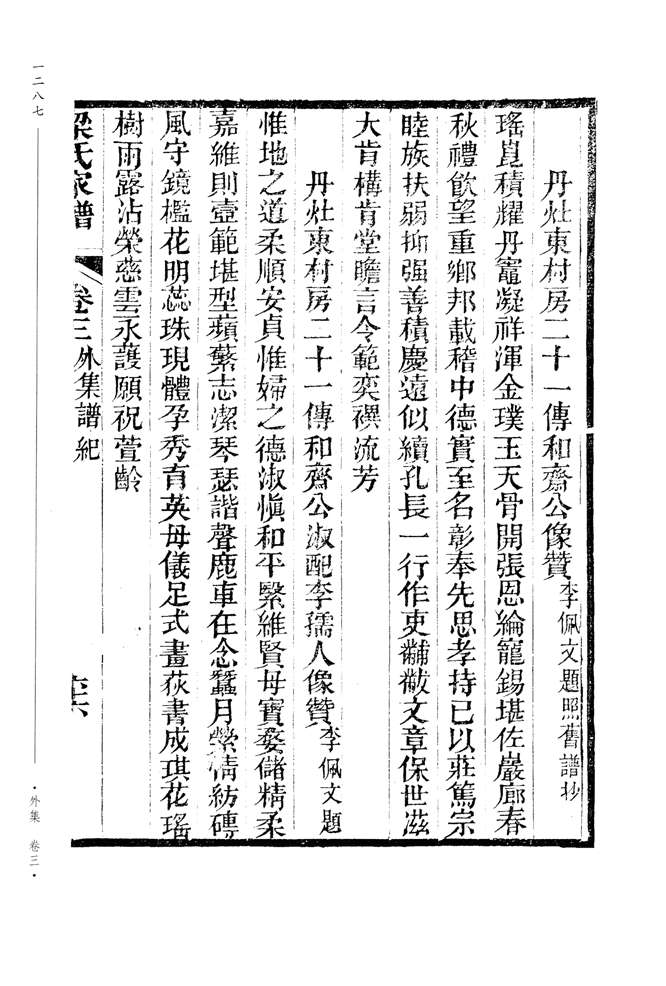 丹灶東村房二十一傳和齋公像贊李佩文題照舊譜抄
瑤崑積耀丹竈凝祥渾金璞玉天骨開張恩綸寵錫堪佐巖廊春
秋禮飲望重鄉邦載稽中德實至名彰奉先思孝持已以莊篤宗
睦族扶弱抑强善積慶遠似續孔長一行作吏黼黻文章保世滋
大肯構肯堂瞻言令範奕禩流芳
丹灶東村房二十一傳和齋公淑配李孺人像贊李佩文題
惟地之道柔順安貞惟婦之德淑愼和平繄維賢母寶婺儲精柔
嘉維則壼範堪型蘋蘩志潔琴瑟諧聲鹿車在念蠶月縈情紡磚
風守鏡檻花明蕊珠現體孕秀育英母儀足式畫荻書成琪花瑤
樹雨露沾榮慈雲永護願祝萱齡
梁氏家譜 卷三外集譜紀
一二八七
·外集 卷三·